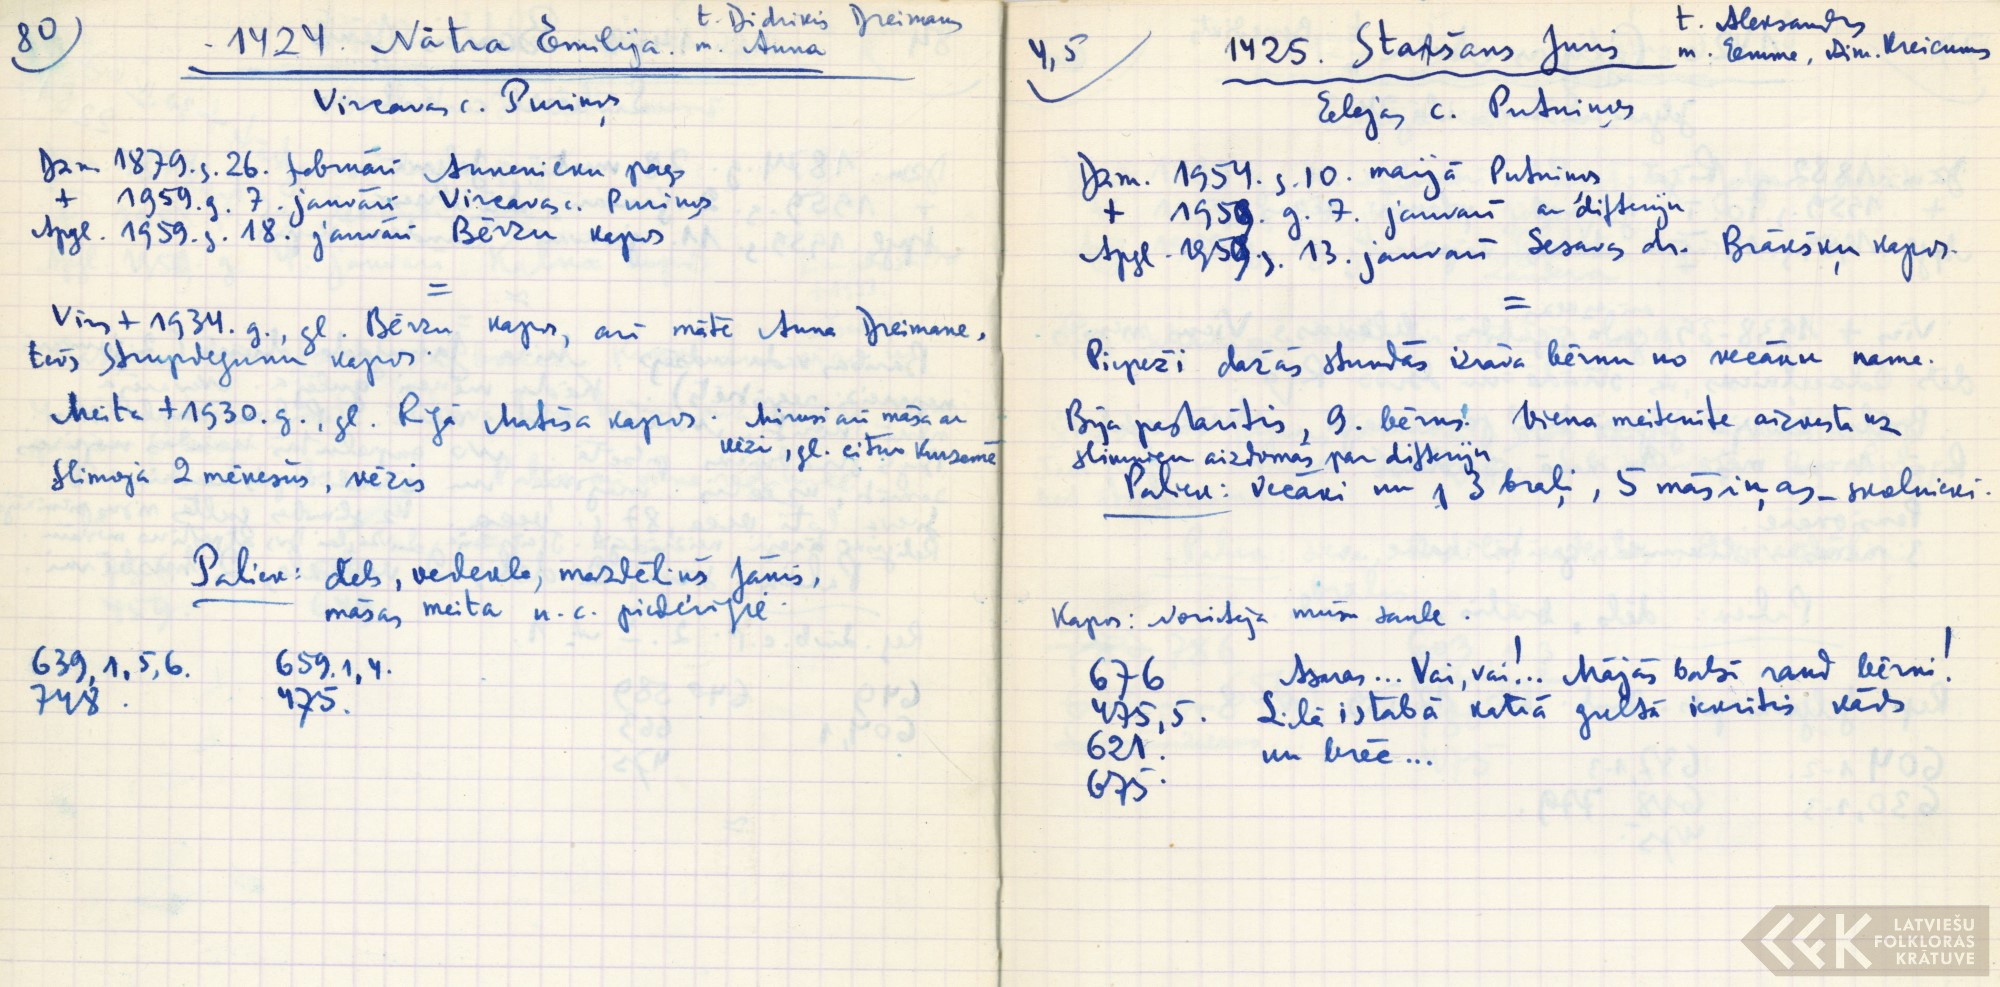 80
1424. Nātra Emilija. t. Didrikis Dreimans
m. Anna
Vircavas c. Puriņos
Dzim. 1879. g. 26. februārī Annenieku pag.
+ 1959. g. 7. janvārī Vircavas c. Puriņos
Apgl. 1959. g. 18. janvārī Bērzu kapos
=
Vīrs + 1934. g., gl. Bērzu kapos, arī māte Anna Dreimane,
tēvs Strupdegunu kapos.
Meita + 1930. g., gl. Rīgā Matīsa kapos. Mirusi arī māsa ar
vēzi, gl. citus Kurzemē
slimoja 2 mēnešus, vēzis
Paliek: dēls, vedekla, mazdēliņš Jānis,
māsas meita u. c. piederīgie.
639,1,5,6. 659.1,4.
748. 475.
4,5
1425. Staršans Juris t. Aleksandrs
m. Emma, dzim. Kreicuma
Elejas c. Putniņos
Dzim. 1954. g. 10. maijā Putniņos
+ 1959. g. 7. janvārī ar difteriju
Apgl. 1959. g. 13. janvārī Sesavas dr. Brākšķu kapos.
=
Piepeži dažās stundās izrāva bērnu no vecāku nama.
Bija pastarītis, 9. bērns! Viena meitenīte aizvesta uz
slimnīcu aizdomās par difteriju
Paliek: vecāki un 3 brāļi, 5 māsiņas – skolnieki.
Kapos: Norietēja mūsu saule.
676 Asaras... Vai, vai!... Mājās balsī raud bērni!
475,5. Lielā istabā katrā gultā iekritis kāds
621. un brēc...
675.
LATVIEŠU
FOLKLORAS
KRĀTUVE